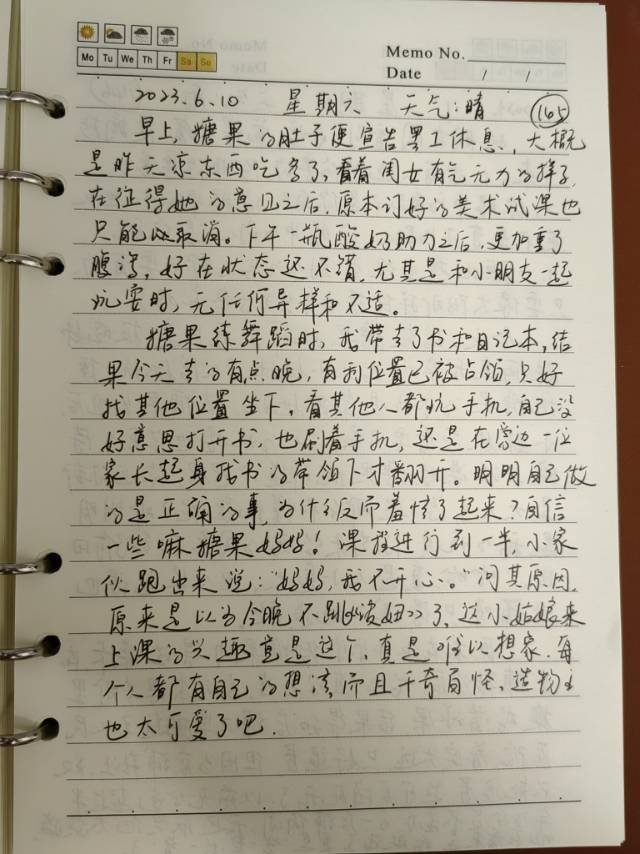 Mo Tu We Th Fr Sa Su
Memo No.
Date / /
2023.6.10 星期六 天气:晴 165
早上,糖果的肚子便宣告罢工休息,大概
是昨天凉东西吃多了,看着闺女有气无力的样子,
在征得她的意见之后,原本订好的美术试课也
只能取消。下午一瓶酸奶助力之后,更加重了
腹泻,好在状态还不错,尤其是和小朋友一起
玩耍时,无任何异样和不适。
糖果练舞蹈时,我带去了书和日记本,结
果今天去的有点晚,有利位置已被占领,只好
找其他位置坐下,看其他人都玩手机,自己没
好意思打开书,也刷着手机,还是在旁边一位
家长起身找书的带领下才翻开。明明自己做
的是正确的事,为什么反而羞怯了起来?自信
一些嘛糖果妈妈!课程进行到一半,小家
伙跑出来说:“妈妈,我不开心。”问其原因,
原来是以为今晚不跳了,这小姑娘来
上课的兴趣竟是这个,真是难以想象。每
个人都有自己的想法,而且千奇百怪,造物主
也太可爱了吧.